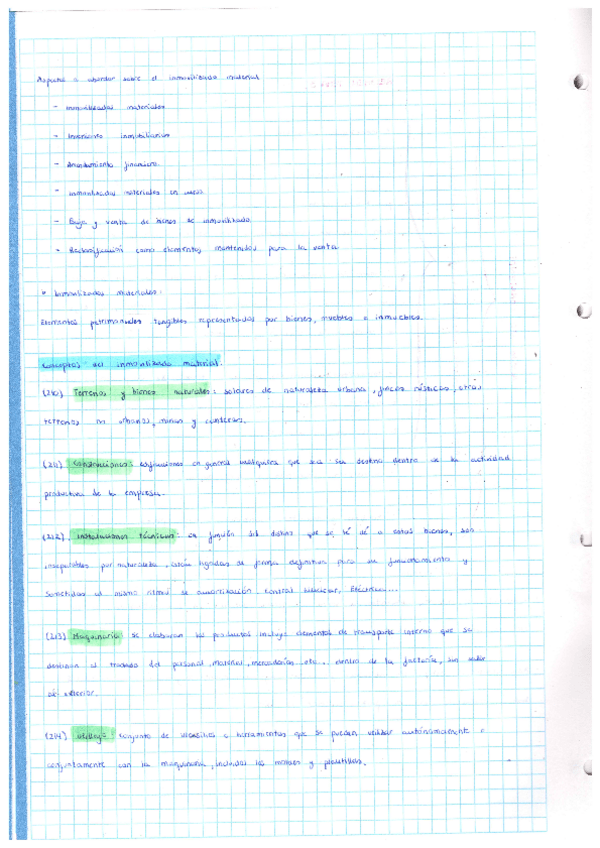 Aspectos a abordar sobre el inmovilizado material
- Inmovilizados materiales
- Inversiones inmobiliarias
- Arrendamiento financiero
- Inmovilizados materiales en curso
- Baja y venta de bienes de inmovilizado
- Reclasificación como elementos mantenidos para la venta
* Inmovilizados materiales:
Elementos patrimoniales tangibles representados por bienes, muebles o inmuebles.
Conceptos del inmovilizado material.
(210) Terrenos y bienes naturales: solares de naturaleza urbana, fincas rústicas, otros
terrenos no urbanos, minas y canteras.
(211) Construcciones: edificaciones en general cualquiera que sea su destino dentro de la actividad
productiva de la empresa.
(212) Instalaciones técnicas: en función del destino que se le dé a estos bienes, son
inseparables por naturaleza, están ligadas de forma definitiva para su funcionamiento y
sometidas al mismo ritmo de amortización. Eléctrica...
(213) Maquinaria se elaboran los productos incluye elementos de transporte interno que se
destinan al traslado del personal, material, mercaderías etc... dentro de la factoría, sin salir
al exterior.
(214) Utillaje: conjunto de utensilios o herramientas que se pueden utilizar autónomamente o
conjuntamente con la maquinaria, incluidos los moldes y plantillas.